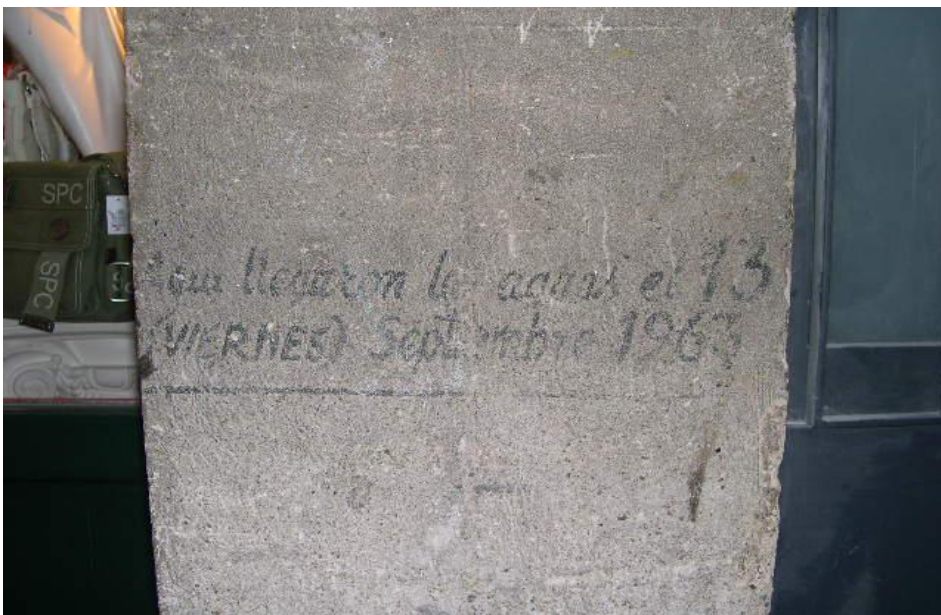 SPC
SPC
Aqui llegaron las aguas el 13
(VIERNES) Septiembre 1963